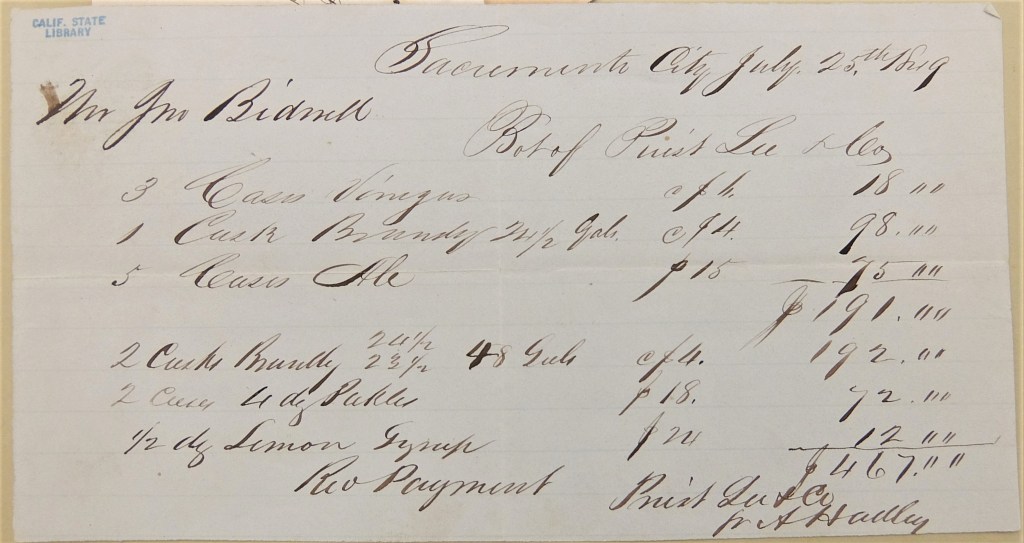 CALIF. STATE
LIBRARY
Sacramento City July. 25.th 1849
Mr Jno Bidwell
Bot of Priest Lee & Co
3 Cases Vinegar @ $6. 18 ""
1 Cask Brandy 24 1/2 Gals. @ $4. 98. ""
5 Cases Ale $15 75 ""
$191. ""
2 Casks Brandy 24 1/2 23 1/2 48 Gals @ $4. 192. ""
2 Cases 4 dz Pickles $18. 72. ""
1/2 dz Lemon Syrup $24 12 ""
$467. ""
Rec Payment Priest Lee & Co
pr A Hadley